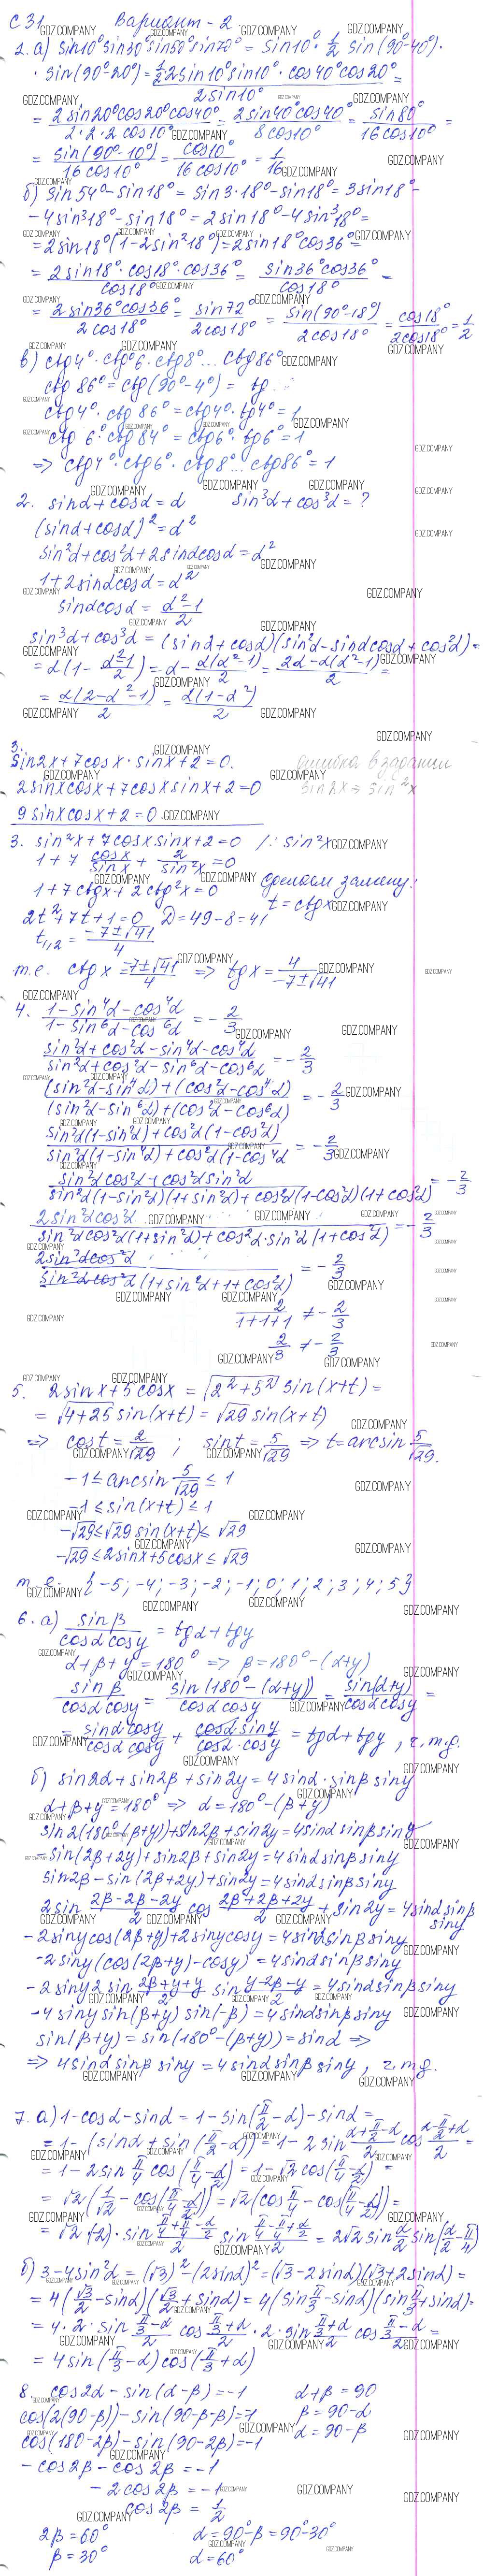 С 31 Вариант - 2
1. а) sin10° sin30° sin50° sin70° = sin10° · 1/2 sin(90°-40°) ·
· sin(90°-20°) = 1/2 · 2sin10° sin10° · cos40° cos20° / 2sin10° =
= 2sin20° cos20° cos40° / 2·2·2 cos10° = 2sin40° cos40° / 8cos10° = sin80° / 16cos10° =
= sin(90°-10°) / 16cos10° = cos10° / 16cos10° = 1/16
б) sin54° - sin18° = sin3·18° - sin18° = 3sin18° -
- 4sin³18° - sin18° = 2sin18° - 4sin³18° =
= 2sin18°(1-2sin²18°) = 2sin18° cos36° =
= 2sin18° · cos18° · cos36° / cos18° = sin36° cos36° / cos18° =
= 2sin36° cos36° / 2cos18° = sin72° / 2cos18° = sin(90°-18°) / 2cos18° = cos18° / 2cos18° = 1/2
в) ctg4° · ctg6° · ctg8° ... ctg86°
ctg86° = ctg(90°-4°) = tg
ctg4° · ctg86° = ctg4° · tg4° = 1
ctg6° · ctg84° = ctg6° · tg6° = 1
=> ctg4° · ctg6° · ctg8° ... ctg86° = 1
2. sinα + cosα = α sin³α + cos³α = ?
(sinα + cosα)² = α²
sin²α + cos²α + 2sinαcosα = α²
1 + 2sinαcosα = α²
sinαcosα = α²-1 / 2
sin³α + cos³α = (sinα + cosα)(sin²α - sinαcosα + cos²α) =
= α(1 - α²-1 / 2) = α - α(α²-1) / 2 = 2α - α(α²-1) / 2 =
= α(2-α²-1) / 2 = α(1-α²) / 2
3.
sin2x + 7cosx · sinx + 2 = 0. ошибка в задании
2sinxcosx + 7cosxsinx + 2 = 0 sin2x => sin²x
9sinxcosx + 2 = 0
3. sin²x + 7cosxsinx + 2 = 0 /: sin²x
1 + 7 cosx/sinx + 2/sin²x = 0
1 + 7ctgx + 2ctg²x = 0 сделаем замену:
2t² + 7t + 1 = 0 D = 49-8 = 41 t = ctgx
t₁,₂ = -7±√41 / 4
т.е. ctgx = -7±√41 / 4 => tgx = 4 / -7±√41
4. 1-sin⁴α-cos⁴α / 1-sin⁶α-cos⁶α = -2/3
sin²α+cos²α-sin⁴α-cos⁴α / sin²α+cos²α-sin⁶α-cos⁶α = -2/3
(sin²α-sin⁴α)+(cos²α-cos⁴α) / (sin²α-sin⁶α)+(cos²α-cos⁶α) = -2/3
sin²α(1-sin²α)+cos²α(1-cos²α) / sin²α(1-sin⁴α)+cos²α(1-cos⁴α = -2/3
sin²αcos²α+cos²αsin²α / sin²α(1-sin²α)(1+sin²α)+cos²α(1-cos²α)(1+cos²α) = -2/3
2sin²αcos²α / sin²αcos²α(1+sin²α)+cos²α·sin²α(1+cos²α) = -2/3
2sin²αcos²α / sin²αcos²α(1+sin²α+1+cos²α) = -2/3
2 / 1+1+1 ≠ -2/3
2/3 ≠ -2/3
5. 2sinx + 5cosx = √(2²+5²) sin(x+t) =
= √(4+25) sin(x+t) = √29 sin(x+t)
=> cost = 2/√29 ; sint = 5/√29 => t = arcsin 5/√29.
-1 ≤ arcsin 5/√29 ≤ 1
-1 ≤ sin(x+t) ≤ 1
-√29 ≤ √29 sin(x+t) ≤ √29
-√29 ≤ 2sinx + 5cosx ≤ √29
т. е. {-5; -4; -3; -2; -1; 0; 1; 2; 3; 4; 5}
6. а) sinβ / cosαcosy = tgα + tgy
α+β+y = 180° => β = 180° - (α+y)
sinβ / cosαcosy = sin(180°-(α+y)) / cosαcosy = sin(α+y) / cosαcosy =
= sinαcosy / cosαcosy + cosαsiny / cosα·cosy = tgα + tgy, ч.т.д.
б) sin2α + sin2β + sin2y = 4sinα · sinβ siny
α+β+y = 180° => α = 180° - (β+y)
sin2(180°-(β+y)) + sin2β + sin2y = 4sinαsinβsiny
-sin(2β+2y) + sin2β + sin2y = 4sinαsinβsiny
sin2β - sin(2β+2y) + sin2y = 4sinαsinβsiny
2sin 2β-2β-2y / 2 cos 2β+2β+2y / 2 + sin2y = 4sinαsinβ siny
-2sinycos(2β+y) + 2sinycosy = 4sinαsinβsiny
-2siny(cos(2β+y)-cosy) = 4sinαsinβsiny
-2siny2sin 2β+y+y / 2 sin y-2β-y / 2 = 4sinαsinβsiny
-4sinysin(β+y)sin(-β) = 4sinαsinβsiny
sin(β+y) = sin(180°-(β+y)) = sinα =>
=> 4sinαsinβsiny = 4sinαsinβsiny, ч.т.д.
7. а) 1-cosα-sinα = 1-sin(π/2-α)-sinα =
= 1-(sinα+sin(π/2-α)) = 1-2sin α+π/2-α / 2 cos α-π/2+α / 2 =
= 1-2sin π/4 cos(π/4-α/2) = 1-√2cos(π/4-α/2) =
= √2(1/√2-cos(π/4-α/2)) = √2(cos π/4-cos(π/4-α/2)) =
= √2(-2)·sin π/4+π/4-α/2 / 2 sin π/4-π/4+α/2 / 2 = 2√2 sin α/2 sin(α/2-π/4)
б) 3-4sin²α = (√3)²-(2sinα)² = (√3-2sinα)(√3+2sinα) =
= 4(√3/2-sinα)(√3/2+sinα) = 4(sin π/3-sinα)(sin π/3+sinα) =
= 4·2·sin π/3-α / 2 cos π/3+α / 2 · 2·sin π/3+α / 2 cos π/3-α / 2 =
= 4sin(π/3-α)cos(π/3+α)
8. cos2α-sin(α-β) = -1 α+β = 90
cos(2(90-β))-sin(90-β-β) = -1 β = 90-α
cos(180-2β)-sin(90-2β) = -1 α = 90-β
-cos2β-cos2β = -1
-2cos2β = -1
cos2β = 1/2
2β = 60° α = 90°-β = 90°-30°
β = 30° α = 60°
GDZ.COMPANY